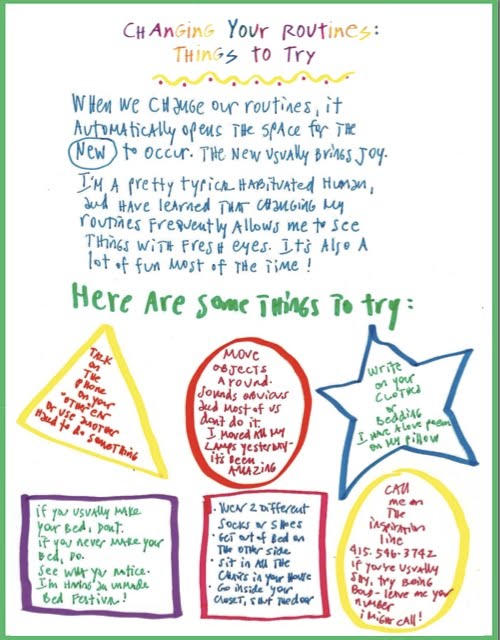 CHANGING YOUR ROUTINES:
THINGS to TRY
WHEN WE CHANGE our routines, it
AUTOMATICALLY opens THE SPACE for THE
NEW to occur. THE NEW USUALLY BRINGS JOY.
I'M A pretty typical HABITUATED HUMAN,
and HAVE learned THAT CHANGING MY
routines FREQUENTLY Allows me to see
THINGS WITH FRESH eyes. It's Also A
lot of fun MOST of THE TIME!
Here Are Some THINGS TO try:
TALK
on
THE
PHONE
on YOUR
"OTHER" EAR
or USE ANOTHER
HAND to do SOMETHING
MOVE
OBJECTS
AROUND.
sounds obvious
and MOST of us
don't do it.
I MOVED All MY
LAMPS yesterday-
it's been
AMAZING
WRITE
on your
CLOTHES
or
Bedding
I HAVE A love poem
on MY pillow
if you USUALLY MAKE
your BED, DON'T.
if you never MAKE your
BED, DO.
See WHAT you notice.
I'm HAVING AN UNMADE
BED FESTIVAL!
• WEAR 2 DIFFERENT
SOCKS or SHOES
• GET out of BED on
THE OTHER SIDE
• Sit in All THE
CHAIRS in your House
• Go inside your
CLOSET, SHUT THE DOOR
CALL
me on
THE
inspiration
line
415.546.3742
if you're USUALLY
SHY, try BEING
BOLD - leave me your
number
i MIGHT CALL!